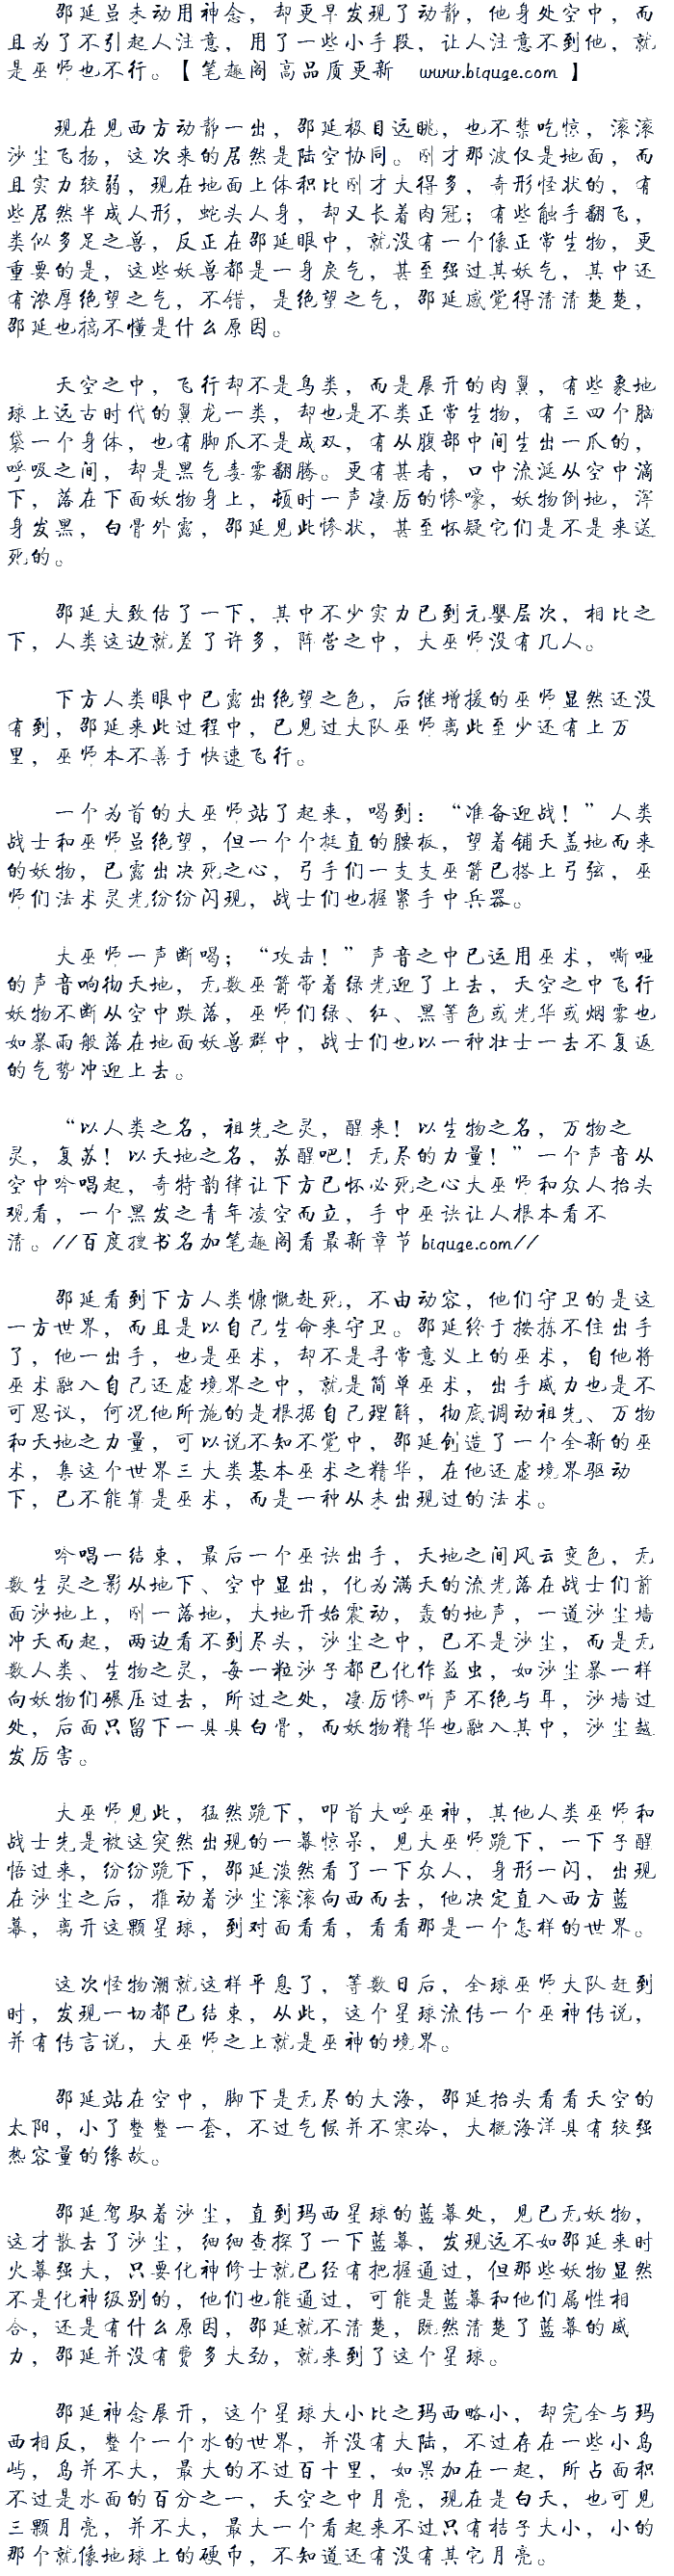 邵延虽未动用神念，却更早发现了动静，他身处空中，而
且为了不引起人注意，用了一些小手段，让人注意不到他，就
是巫师也不行。【 笔趣阁 高品质更新 www.biquge.com 】
现在见西方动静一出，邵延极目远眺，也不禁吃惊，滚滚
沙尘飞扬，这次来的居然是陆空协同。刚才那波仅是地面，而
且实力较弱，现在地面上体积比刚才大得多，奇形怪状的，有
些居然半成人形，蛇头人身，却又长着肉冠；有些触手翻飞，
类似多足之兽，反正在邵延眼中，就没有一个像正常生物，更
重要的是，这些妖兽都是一身戾气，甚至强过其妖气，其中还
有浓厚绝望之气，不错，是绝望之气，邵延感觉得清清楚楚，
邵延也搞不懂是什么原因。
天空之中，飞行却不是鸟类，而是展开的肉翼，有些象地
球上远古时代的翼龙一类，却也是不类正常生物，有三四个脑
袋一个身体，也有脚爪不是成双，有从腹部中间生出一爪的，
呼吸之间，却是黑气毒雾翻腾。更有甚者，口中流涎从空中滴
下，落在下面妖物身上，顿时一声凄厉的惨嚎，妖物倒地，浑
身发黑，白骨外露，邵延见此惨状，甚至怀疑它们是不是来送
死的。
邵延大致估了一下，其中不少实力已到元婴层次，相比之
下，人类这边就差了许多，阵营之中，大巫师没有几人。
下方人类眼中已露出绝望之色，后继增援的巫师显然还没
有到，邵延来此过程中，已见过大队巫师离此至少还有上万
里，巫师本不善于快速飞行。
一个为首的大巫师站了起来，喝到：“准备迎战！”人类
战士和巫师虽绝望，但一个个挺直的腰板，望着铺天盖地而来
的妖物，已露出决死之心，弓手们一支支巫箭已搭上弓弦，巫
师们法术灵光纷纷闪现，战士们也握紧手中兵器。
大巫师一声断喝；“攻击！”声音之中已运用巫术，嘶哑
的声音响彻天地，无数巫箭带着绿光迎了上去，天空之中飞行
妖物不断从空中跌落，巫师们绿、红、黑等色或光华或烟雾也
如暴雨般落在地面妖兽群中，战士们也以一种壮士一去不复返
的气势冲迎上去。
“以人类之名，祖先之灵，醒来！以生物之名，万物之
灵，复苏！以天地之名，苏醒吧！无尽的力量！”一个声音从
空中吟唱起，奇特韵律让下方已怀必死之心大巫师和众人抬头
观看，一个黑发之青年凌空而立，手中巫诀让人根本看不
清。//百度搜书名加笔趣阁看最新章节 biquge.com//
邵延看到下方人类慷慨赴死，不由动容，他们守卫的是这
一方世界，而且是以自己生命来守卫。邵延终于按捺不住出手
了，他一出手，也是巫术，却不是寻常意义上的巫术，自他将
巫术融入自己还虚境界之中，就是简单巫术，出手威力也是不
可思议，何况他所施的是根据自己理解，彻底调动祖先、万物
和天地之力量，可以说不知不觉中，邵延创造了一个全新的巫
术，集这个世界三大类基本巫术之精华，在他还虚境界驱动
下，已不能算是巫术，而是一种从未出现过的法术。
吟唱一结束，最后一个巫诀出手，天地之间风云变色，无
数生灵之影从地下、空中显出，化为满天的流光落在战士们前
面沙地上，刚一落地，大地开始震动，轰的地声，一道沙尘墙
冲天而起，两边看不到尽头，沙尘之中，已不是沙尘，而是无
数人类、生物之灵，每一粒沙子都已化作益虫，如沙尘暴一样
向妖物们碾压过去，所过之处，凄厉惨听声不绝与耳，沙墙过
处，后面只留下一具具白骨，而妖物精华也融入其中，沙尘越
发厉害。
大巫师见此，猛然跪下，叩首大呼巫神，其他人类巫师和
战士先是被这突然出现的一幕惊呆，见大巫师跪下，一下子醒
悟过来，纷纷跪下，邵延淡然看了一下众人，身形一闪，出现
在沙尘之后，推动着沙尘滚滚向西而去，他决定直入西方蓝
幕，离开这颗星球，到对面看看，看看那是一个怎样的世界。
这次怪物潮就这样平息了，等数日后，全球巫师大队赶到
时，发现一切都已结束，从此，这个星球流传一个巫神传说，
并有传言说，大巫师之上就是巫神的境界。
邵延站在空中，脚下是无尽的大海，邵延抬头看看天空的
太阳，小了整整一套，不过气候并不寒冷，大概海洋具有较强
热容量的缘故。
邵延驾驭着沙尘，直到玛西星球的蓝幕处，见已无妖物，
这才散去了沙尘，细细查探了一下蓝幕，发现远不如邵延来时
火幕强大，只要化神修士就已经有把握通过，但那些妖物显然
不是化神级别的，他们也能通过，可能是蓝幕和他们属性相
合，还是有什么原因，邵延就不清楚，既然清楚了蓝幕的威
力，邵延并没有费多大劲，就来到了这个星球。
邵延神念展开，这个星球大小比之玛西略小，却完全与玛
西相反，整个一个水的世界，并没有大陆，不过存在一些小岛
屿，岛并不大，最大的不过百十里，如果加在一起，所占面积
不过是水面的百分之一，天空之中月亮，现在是白天，也可见
三颗月亮，并不大，最大一个看起来不过只有桔子大小，小的
那个就像地球上的硬币，不知道还有没有其它月亮。